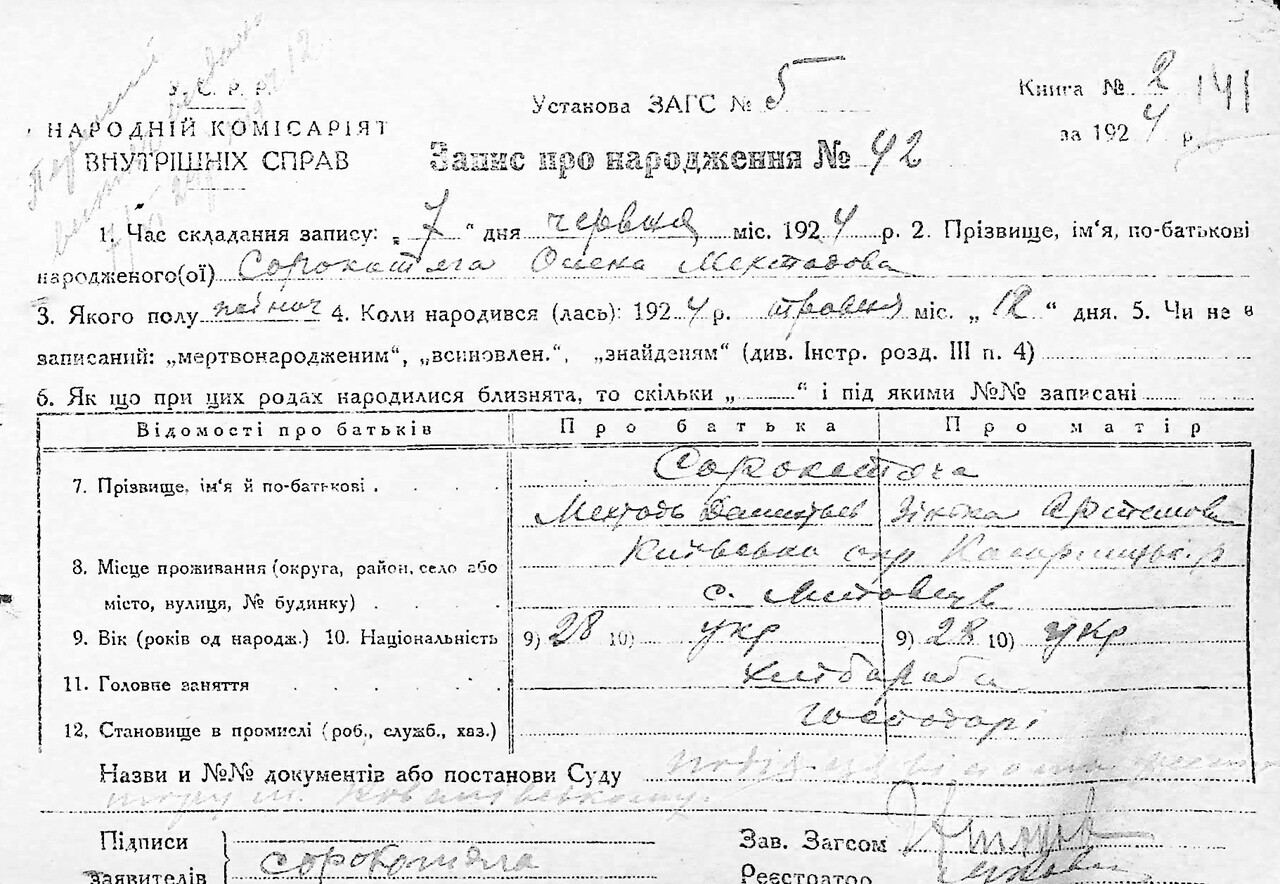 У. С. Р. Р.
НАРОДНІЙ КОМІСАРІЯТ
ВНУТРІШНІХ СПРАВ
Установа ЗАГС № 5
Книга № 2 141
за 1924 р.
Запис про народження № 42
1. Час складання запису: „7“ дня червня міс. 1924 р. 2. Прізвище, ім‘я, по-батькові
народженого(ої) Сорокотяга Олена Мехтодова
3. Якого полу жіноч 4. Коли народився (лась): 1924 р. травня міс. „12“ дня. 5. Чи не є
записаний: „мертвонародженим“, „всиновлен.“, „знайденям“ (див. Інстр. розд. III п. 4)
6. Як що при цих родах народилися близнята, то скільки „ “ і під якими №№ записані
Відомості про батьків Про батька Про матір
7. Прізвище, ім‘я й по-батькові Сорокотяга
Мехтодь Зінька
8. Місце проживання (округа, район, село або Київська окр Кагарлицьк. р
місто, вулиця, № будинку) с.
9. Вік (років од народж.) 10. Національність 9) 28 10) укр 9) 28 10) укр
11. Головне заняття хлібороби
12. Становище в промислі (роб., служб., хаз.) господарі
Назви и №№ документів або постанови Суду
Підписи
заявителів Сорокотяга
Зав. Загсом
Реєстратор